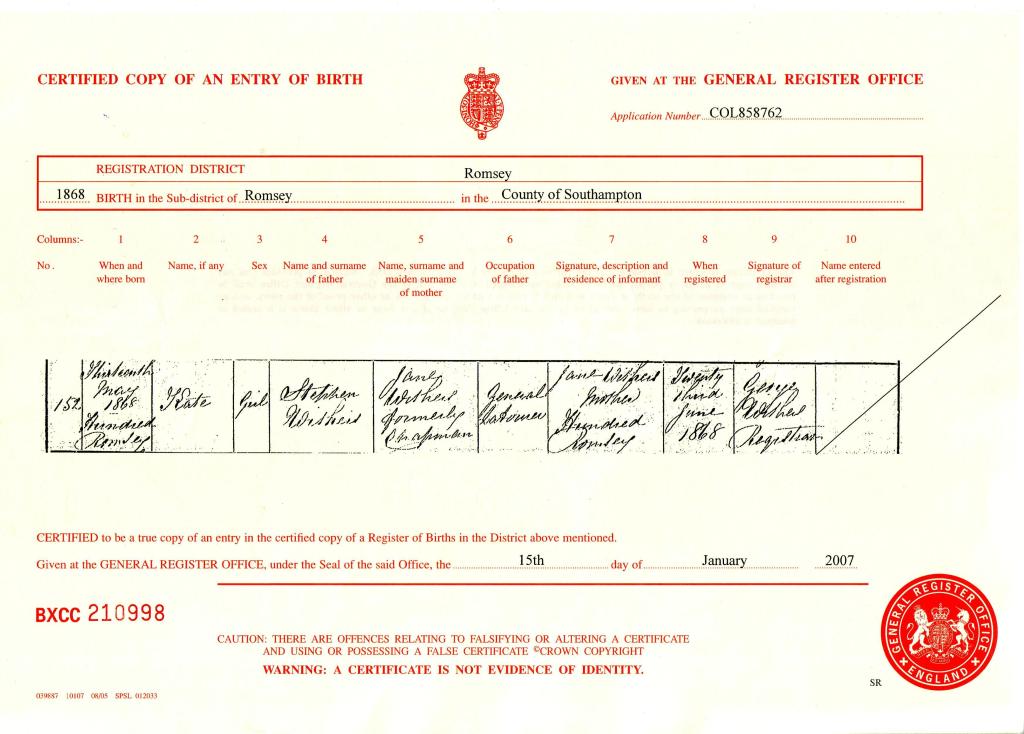 CERTIFIED COPY OF AN ENTRY OF BIRTH
GIVEN AT THE GENERAL REGISTER OFFICE
Application Number COL858762
REGISTRATION DISTRICT Romsey
1868 BIRTH in the Sub-district of Romsey in the County of Southampton
Columns:- 1 2 3 4 5 6 7 8 9 10
No. When and where born
Name, if any
Sex
Name and surname of father
Name, surname and maiden surname of mother
Occupation of father
Signature, description and residence of informant
When registered
Signature of registrar
Name entered after registration
152
Thirteenth
May
1868
Hundred
Romsey
Kate
Girl
Stephen
Withers
Jane
Withers
formerly
Chapman
General
Labourer
Jane Withers
Mother
Hundred
Romsey
Twenty
third
June
1868
George
Withers
Registrar
CERTIFIED to be a true copy of an entry in the certified copy of a Register of Births in the District above mentioned.
Given at the GENERAL REGISTER OFFICE, under the Seal of the said Office, the 15th day of January 2007
BXCC 210998
CAUTION: THERE ARE OFFENCES RELATING TO FALSIFYING OR ALTERING A CERTIFICATE
AND USING OR POSSESSING A FALSE CERTIFICATE ©CROWN COPYRIGHT
WARNING: A CERTIFICATE IS NOT EVIDENCE OF IDENTITY.
GENERAL REGISTER OFFICE
ENGLAND
SR
039887 10107 08/05 SPSL 012033